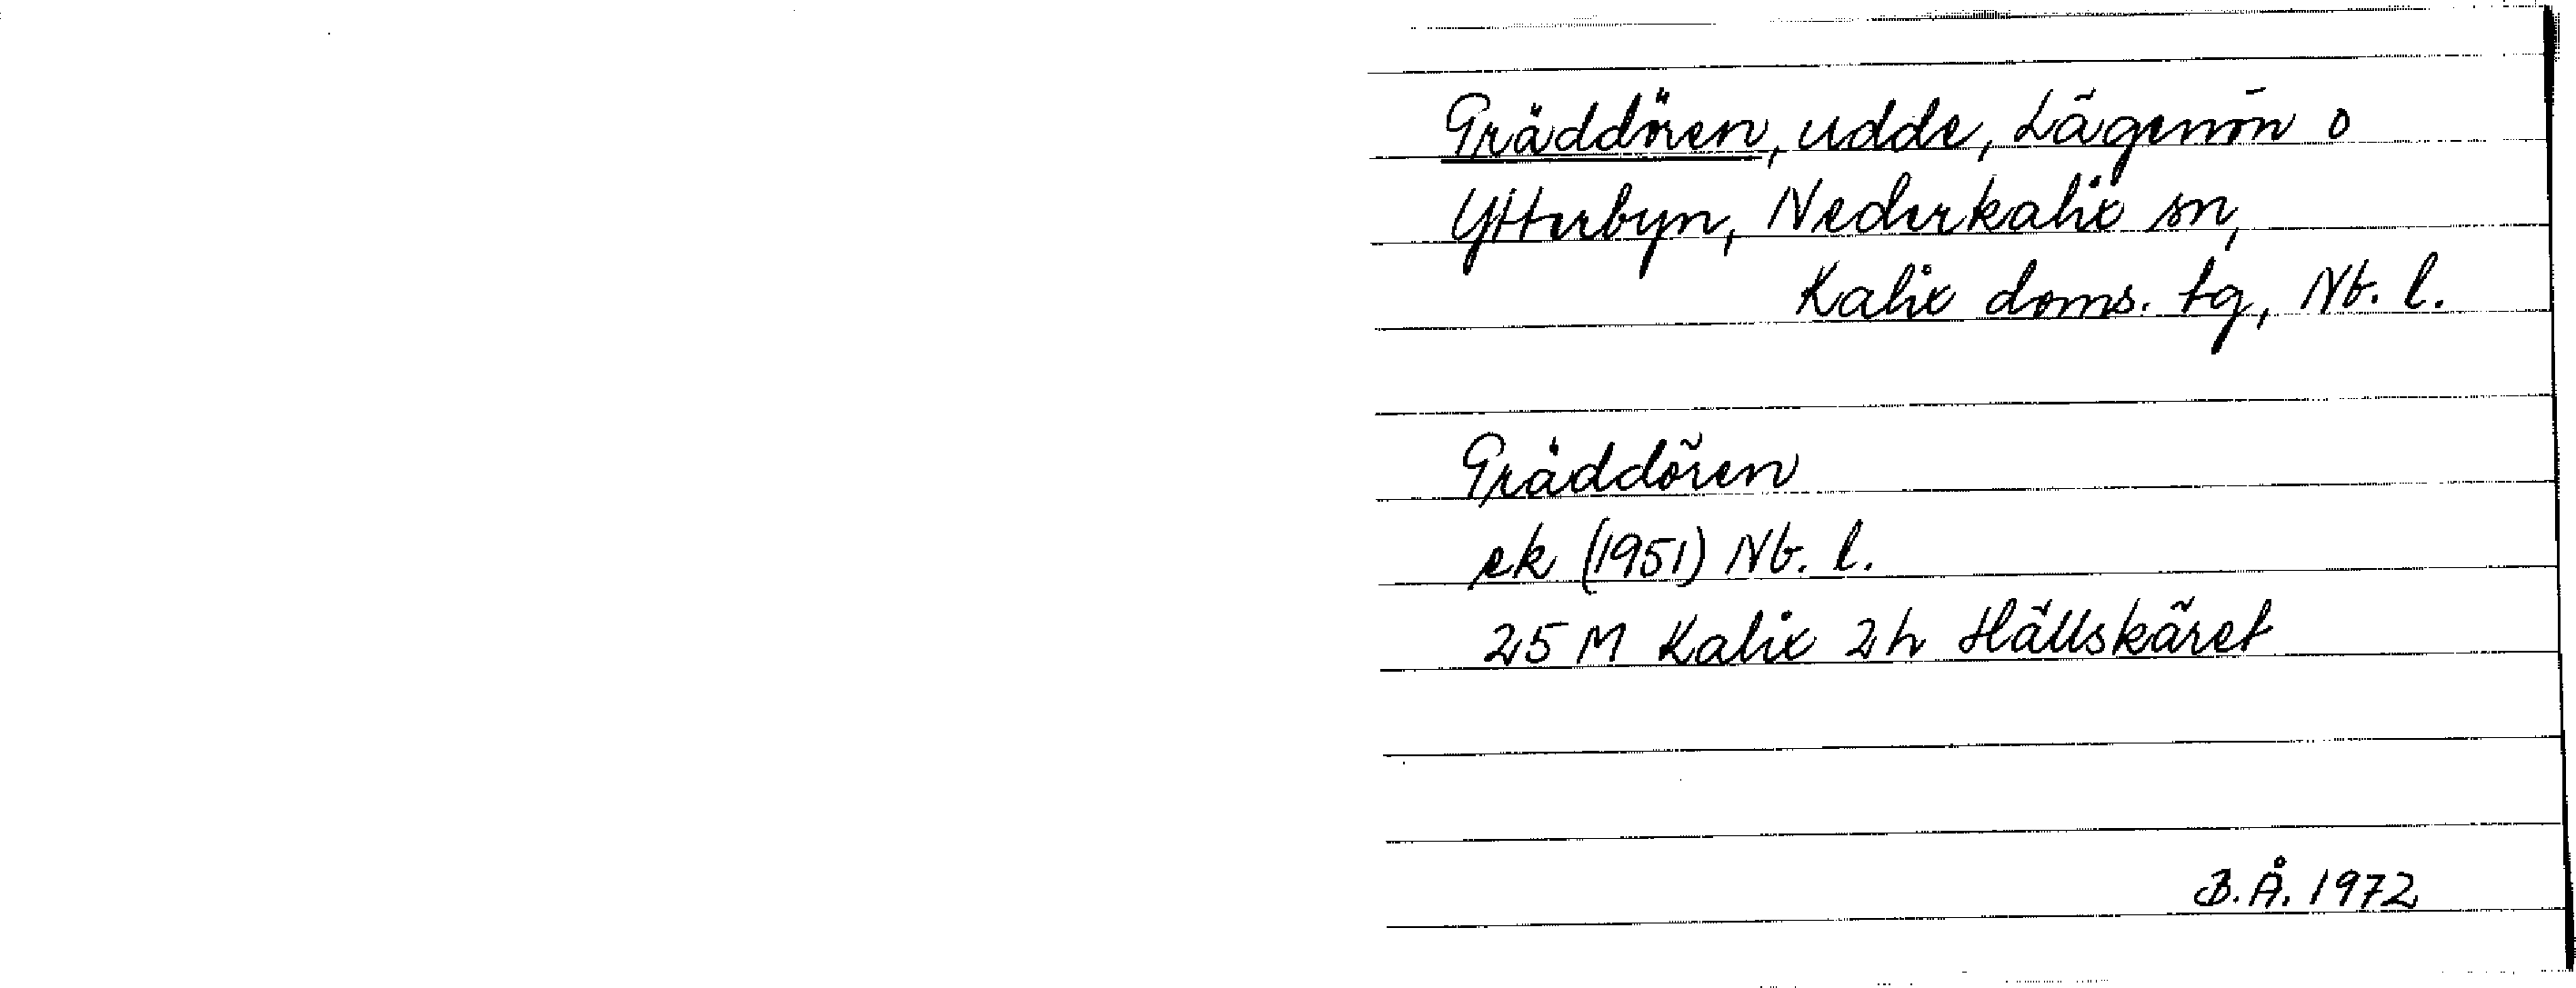 Gräddören, udde, Lägenön o
Ytterbyn, Nederkalix sn,
Kalix doms. tg, Nb. l.
Gräddören
ek (1951) Nb. l.
25 M Kalix 2h Hällskäret
B.Å. 1972